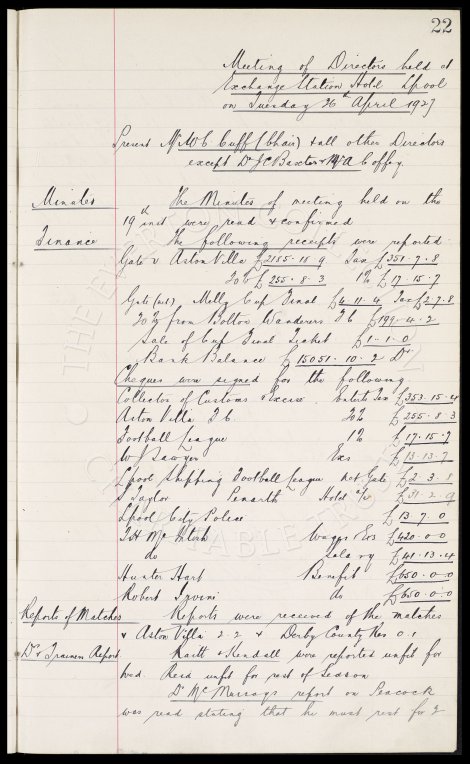 22
Meeting of Directors held at
Exchange Station Hotel Lpool
on Tuesday 26th April 1927
Present Mr W C Cuff (Chair) & all other Directors
except Dr J C Baxter & Mr A Coffey.
Minutes The Minutes of meeting held on the
19th inst were read & confirmed
Finance The following receipts were reported
Gate v Aston Villa £2185.18.9 Tax £351.7.8
20% £255.8.3 1% £17.15.7
Gate (net) Molly Cup Final £4.11.4 Tax £2.7.8
20% from Bolton Wanderers F C £199.4.2
Sale of Cup Final Ticket £1.1.0
Bank Balance £15051.10.2 Dr
Cheques were signed for the following
Collector of Customs & Excise Entets Tax £353.15.4
Aston Villa F C. 20% £255.8.3
Football League 1% £17.15.7
W Sawyer Exs £13.13.7
Lpool Shipping Football League net Gate £2.3.8
S Taylor Penarth Hotel a/c £31.2.9
Lpool City Police £13.7.0
T H McIntosh Wages Exs £420.0.0
do Salary £41.13.4
Hunter Hart Benefit £650.0.0
Robert Irvine do £650.0.0
Reports of Matches Reports were received of the matches
v Aston Villa 2.2 & Derby County Res 0.1
Dr & Trainers Report Raitt & Kendall were reported unfit for
wed. Reid unfit for rest of Season
Dr McMurrays report on Peacock
was read stating that he must rest for 2